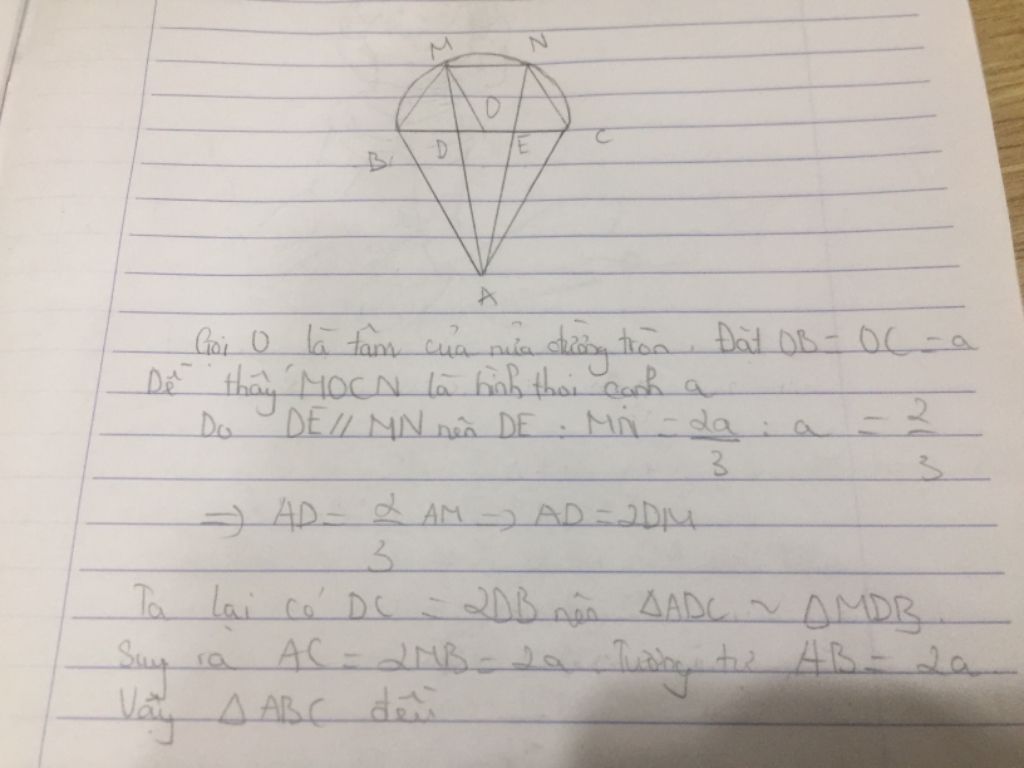 M N
O
B D E C
A
Gọi O là tâm của nửa đường tròn. Đặt OB = OC = a
Dễ thấy MOCN là hình thoi cạnh a
Do DE // MN nên DE : MN = 2a/3 : a = 2/3
=> AD = 2/3 AM => AD = 2DM
Ta lại có DC = 2DB nên ΔADC ~ ΔMDB.
Suy ra AC = 2MB = 2a. Tương tự AB = 2a
Vậy ΔABC đều